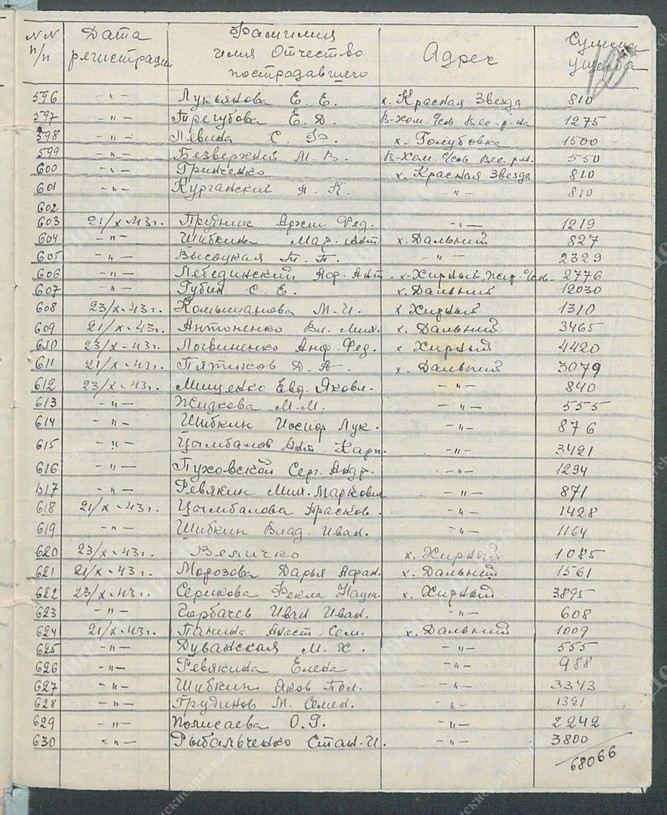 NN п/п Дата регистрации Фамилия имя Отчество пострадавшего Адрес Сумма ущерба
596 -"- Лукьянова Е. Е. х. Красная Звезда 810
597 -"- Трегубова Е. Д. В-Хом. Чель Все. р-на 1275
598 -"- Левина С. Ф. х. Голубовка 1500
599 -"- Безверхний М. В. В-Хом. Чель Все. р-н. 550
600 -"- Гринченко х. Красная Звезда 810
601 -"- Курганский А. К. -"- 810
602
603 21/X-43г. Прудник Фед. -"- 1219
604 -"- Шибкина Мар. Ант. х. Дальний 827
605 -"- Высоцкая Т. П. -"- 2329
606 -"- Лебединский Аф. Ант. х-Хирный 2776
607 -"- Губин С. Е. х. Дальний 12030
608 23/X-43г. М. И. х Хирный 1310
609 21/X-43г. Антоненко Вл. Мих. х. Дальний 3465
610 23/X-43г. Логвиненко Анф. Фед. х Хирный 4420
611 21/X-43г. Пятиков Д. А. х. Дальний 3079
612 23/X-43г. Мищенко Евд. Яковл. -"- 840
613 -"- Жидкова М. М. -"- 555
614 -"- Шибкин Иосиф Лук. -"- 876
615 -"- Цымбалов Ант Карп. -"- 3421
616 -"- Пуховской Серг. Андр. -"- 1294
617 -"- Ревякин Мих. Маркович -"- 871
618 21/X-43г. Цымбалова Прасков. -"- 1428
619 -"- Шибкин Влад. Иван. -"- 1164
620 23/X-43г. Величко х. Хирный 1085
621 21/X-43г. Морозова Дарья Афан. х. Дальний 1561
622 23/X-43г. Серикова Фекла Наум. х. Хирный 3895
623 -"- Горбачев Иван Иван. -"- 608
624 21/X-43г. Панина Наст. Сем. х. Дальний 1009
625 -"- Дуванская М. Х. -"- 555
626 -"- Ревякина Елена -"- 988
627 -"- Шибкин Яков Пол. -"- 3343
628 -"- Грудинов М. Семен. -"- 1321
629 -"- Полисаева О. Г. -"- 2242
630 -"- Рыбальченко Стан. И. -"- 3800
68066